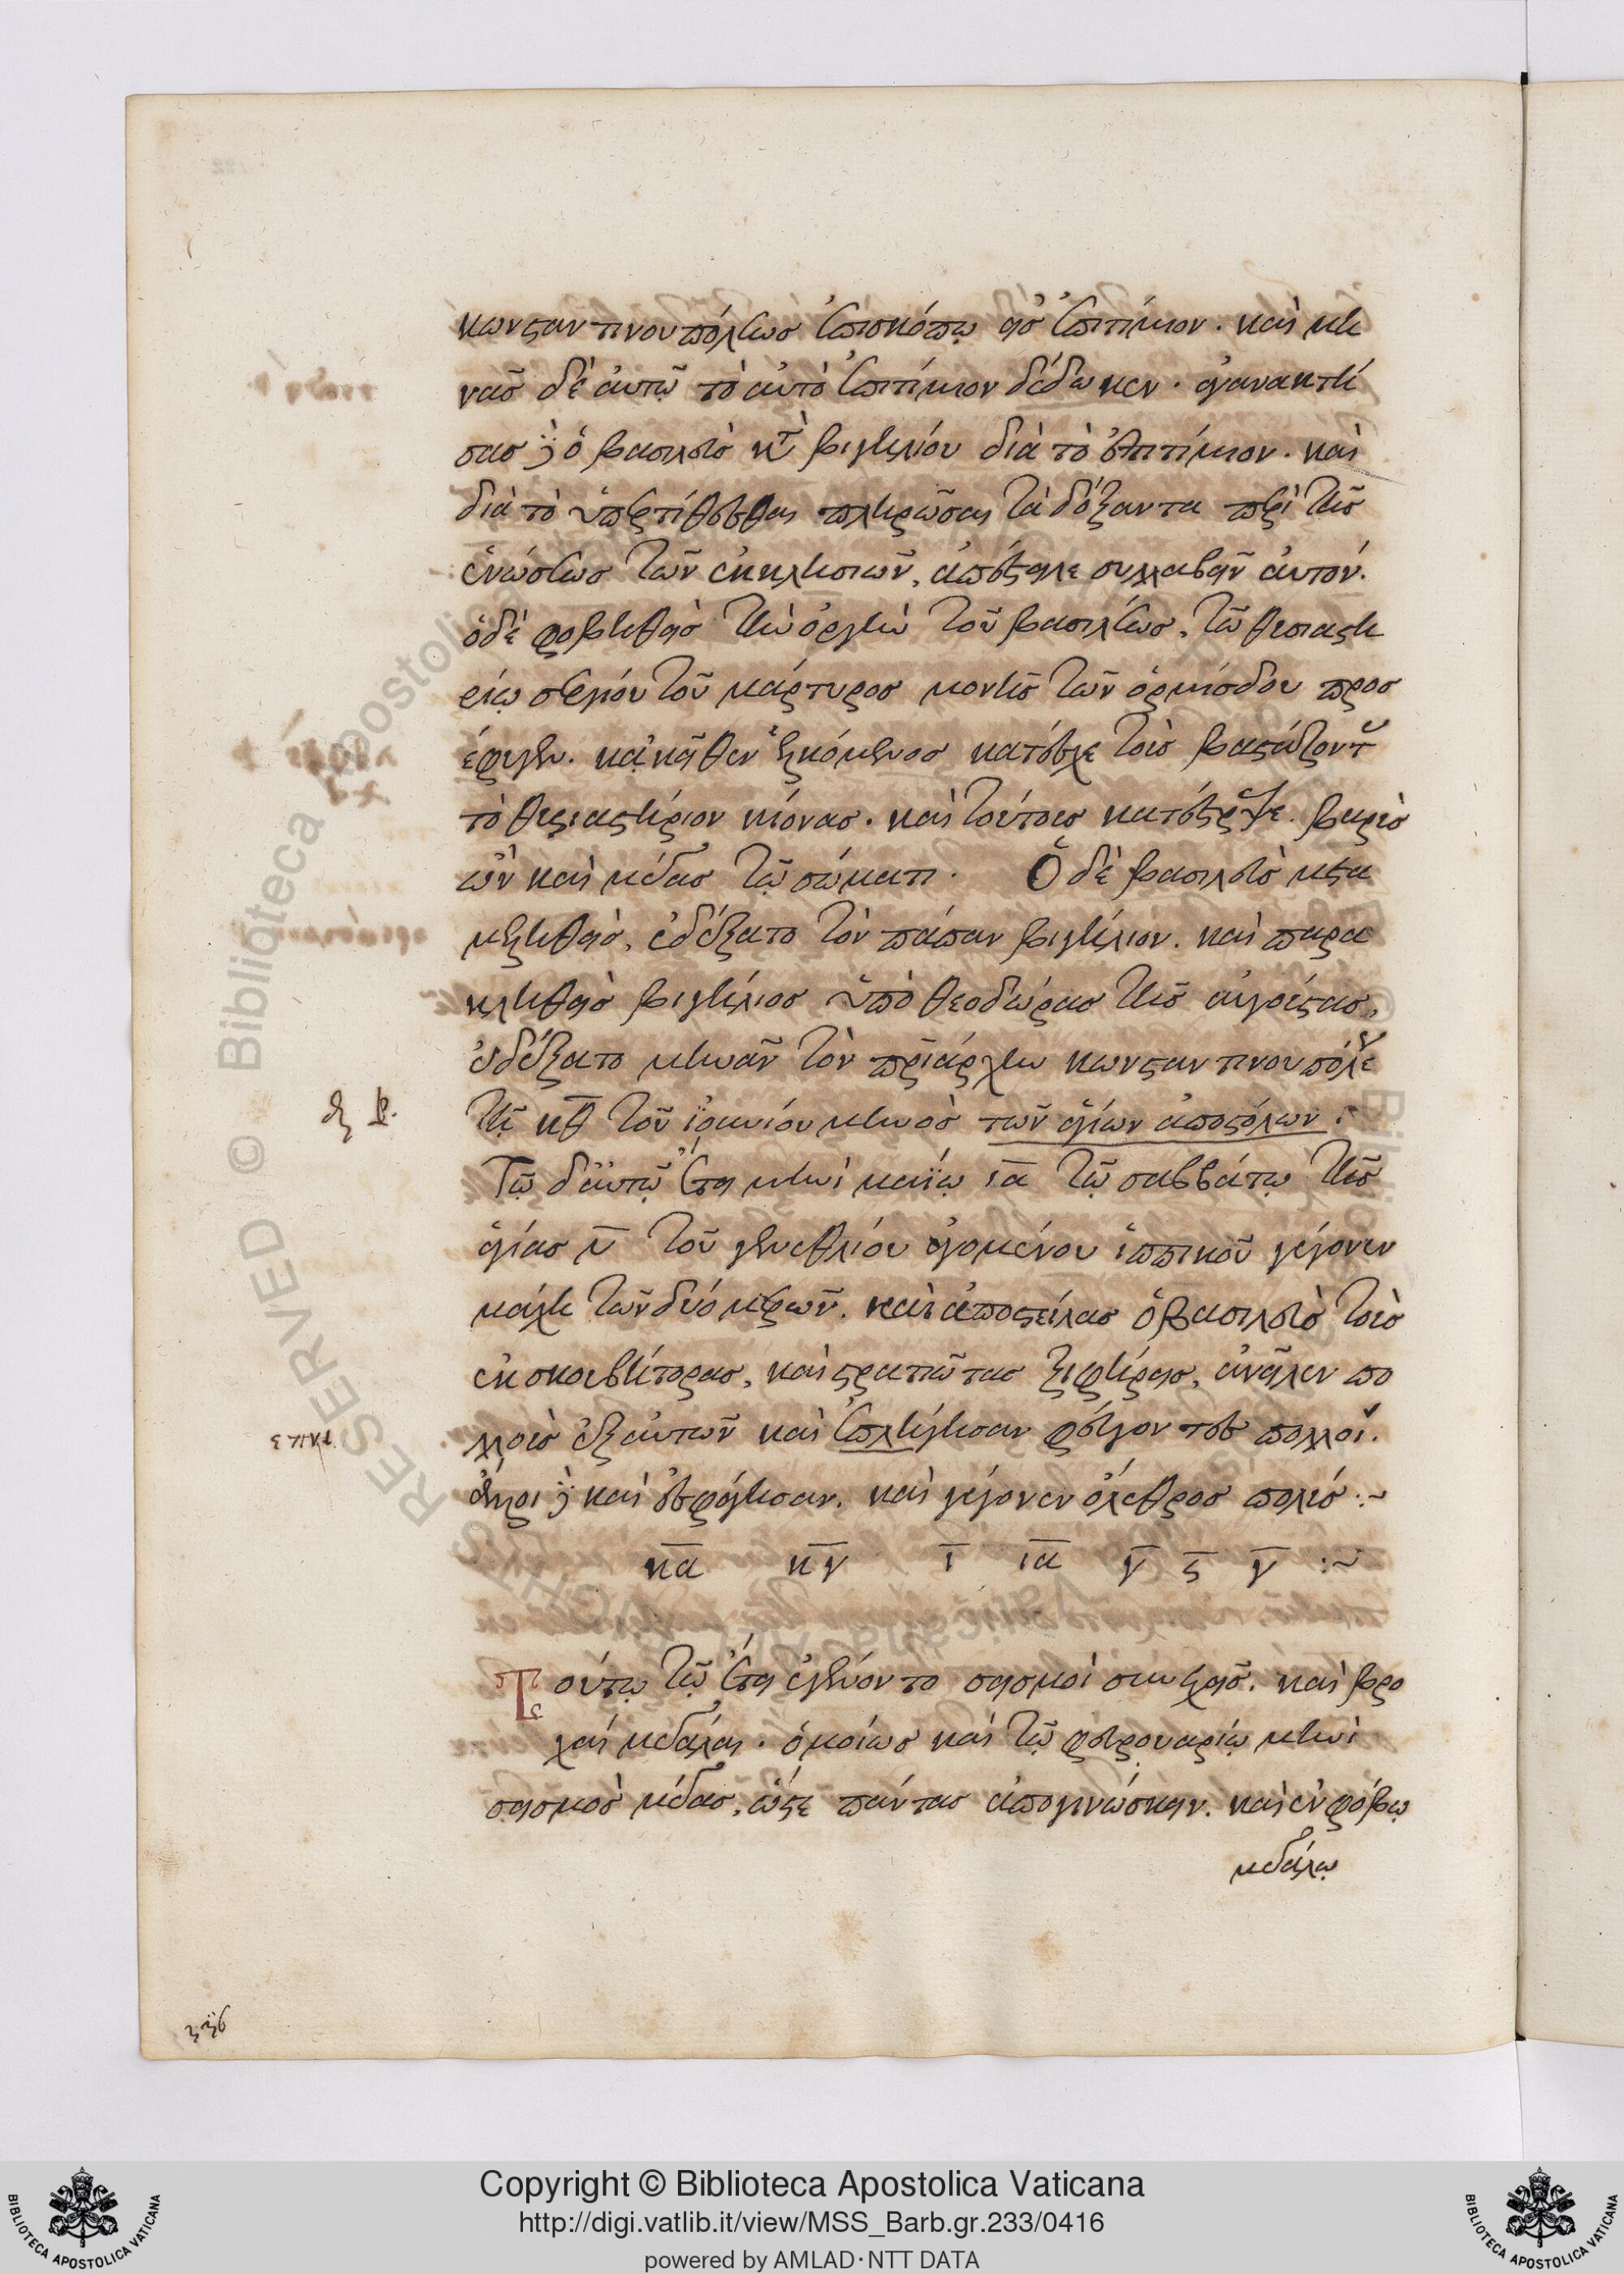 κωνσταντινουπόλεως ἐπισκόπῳ εἰς ἐπιτίμιον. καὶ μη
νᾶς δὲ αὐτῷ τὸ αὐτὸ ἐπιτίμιον δέδωκεν. ἀγανακτή
σας δὲ ὁ βασιλεὺς κατὰ βιγιλίου διὰ τὸ ἐπιτίμιον. καὶ
διὰ τὸ ὑπερτίθεσθαι πληρῶσαι τὰ δόξαντα περὶ τῆς
ἑνώσεως τῶν ἐκκλησιῶν, ἀπέστειλε συλλαβεῖν αὐτόν.
ὁ δὲ φοβηθεὶς τὴν ὀργὴν τοῦ βασιλέως, τῷ θυσιαστη
ρίῳ σεργίου τοῦ μάρτυρος μονῆς τῶν ὁρμίσδου προσ
έφυγεν. κἀκεῖθεν ἑλκόμενος κατέσχε τοὺς βαστάζοντας
τὸ θυσιαστήριον κίονας. καὶ τούτους κατέστρεψε. βαρὺς
ὢν καὶ μέγας τῷ σώματι. Ὁ δὲ βασιλεὺς μετα
μεληθεὶς, ἐδέξατο τὸν πάπαν βιγίλιον. καὶ παρα
κληθεὶς βιγίλιος ὑπὸ θεοδώρας τῆς αὐγούστας,
ἐδέξατο μηνᾶν τὸν πατριάρχην κωνσταντινουπόλεως
τῇ κθ τοῦ ἰουνίου μηνὸς τῶν ἁγίων ἀποστόλων:
Τῷ δ' αὐτῷ ἔτει μηνὶ μαΐῳ ια τῷ σαββάτῳ τῆς
ἁγίας ν τοῦ γενεθλίου ἀγομένου ἱππικοῦ γέγονεν
μάχη τῶν δύο μερῶν. καὶ ἀποστείλας ὁ βασιλεὺς τοὺς
ἐκσκουβίτορας, καὶ στρατιῶτας ξιφήρεις, ἀνεῖλεν πο
λλοὺς ἐξ αὐτῶν καὶ ἐπλήγησαν φεύγοντες πολλοί.
ἕτεροι δὲ καὶ ἐσφάγησαν. καὶ γέγονεν ὄλεθρος πολύς :~
κα κγ ι ια γ ς γ :~
Τούτῳ τῷ ἔτει ἐγένοντο σεισμοὶ συνεχεῖς. καὶ βρο
χαὶ μεγάλαι. ὁμοίως καὶ τῷ φευρουαρίῳ μηνὶ
σεισμὸς μέγας, ὥστε πάντας ἀπογινώσκειν. καὶ ἐν φόβῳ
μεγάλῳ
RESERVED © Biblioteca Apostolica Vaticana
Copyright © Biblioteca Apostolica Vaticana
http://digi.vatlib.it/view/MSS_Barb.gr.233/0416
powered by AMLAD·NTT DATA
BIBLIOTECA APOSTOLICA VATICANA
BIBLIOTECA APOSTOLICA VATICANA